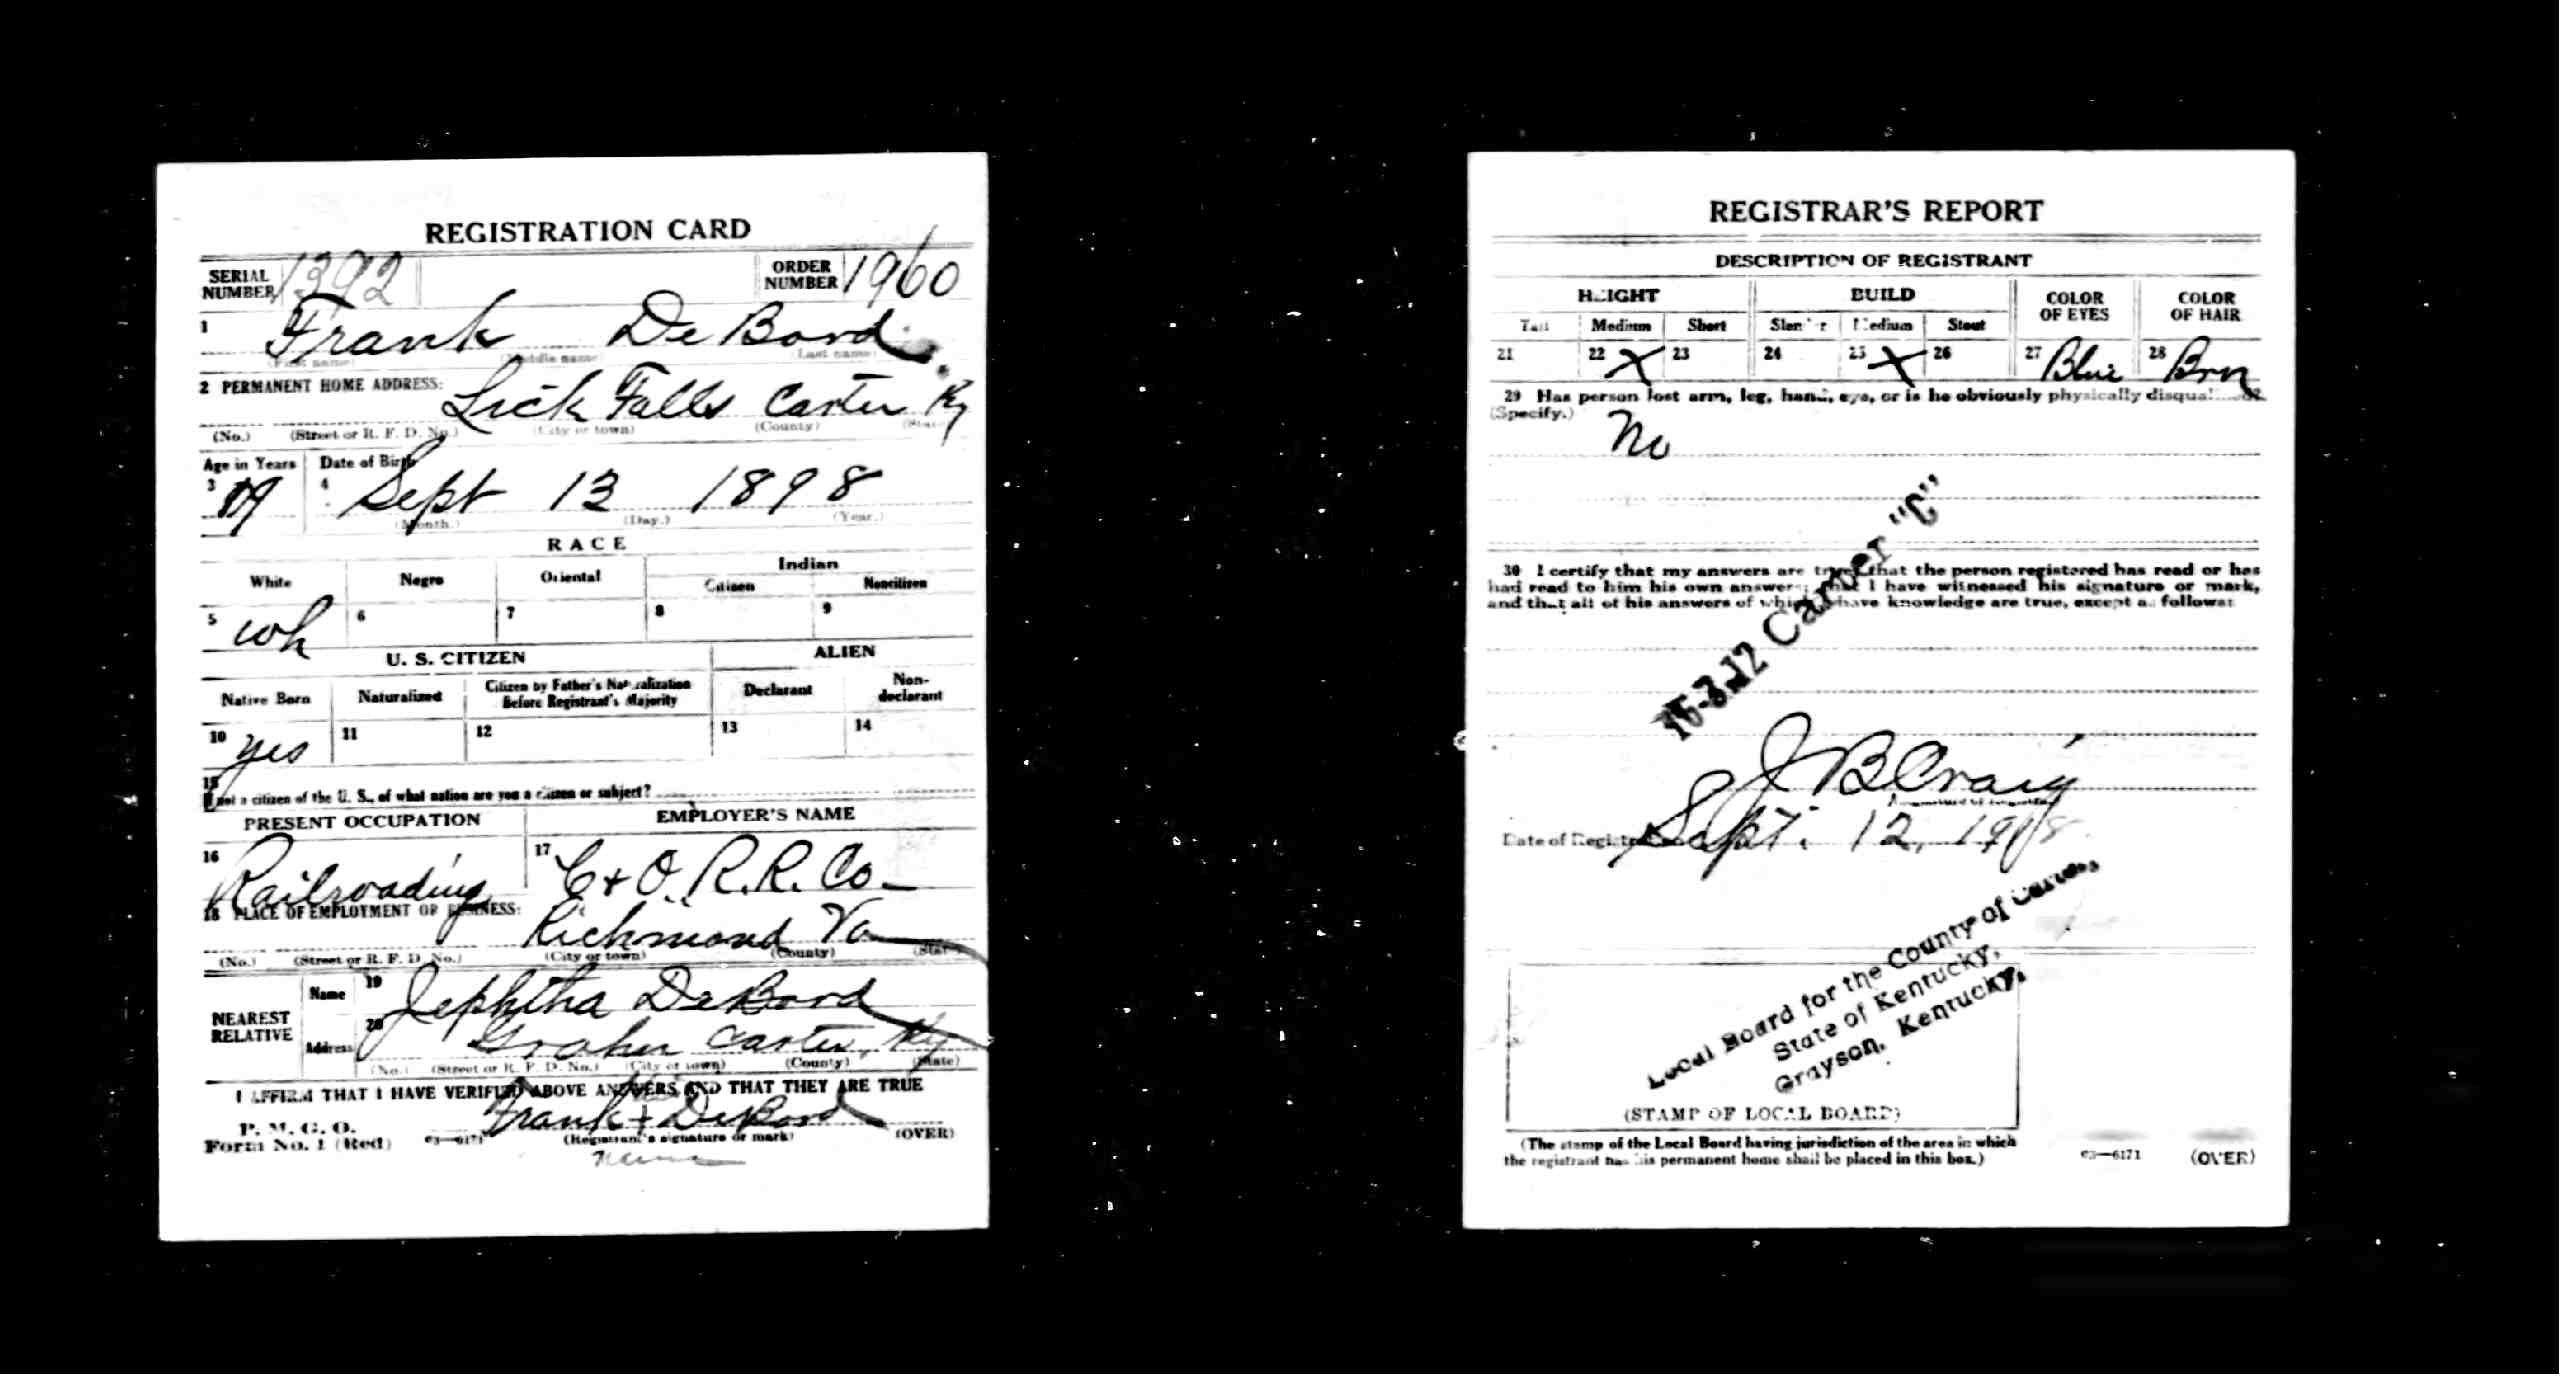 REGISTRATION CARD
SERIAL NUMBER 1392 ORDER NUMBER 1960
1 Frank De Bord
(First name) (Middle name) (Last name)
2 PERMANENT HOME ADDRESS: Lick Falls Carter Ky
(No.) (Street or R. F. D. No.) (City or town) (County) (State)
Age in Years Date of Birth
3 19 4 Sept 13 1898
(Month.) (Day.) (Year.)
RACE
White Negro Oriental Indian
Citizen Noncitizen
5 wh 6 7 8 9
U. S. CITIZEN ALIEN
Native Born Naturalized Citizen by Father's Naturalization Before Registrant's Majority Declarant Non-declarant
10 yes 11 12 13 14
15
If not a citizen of the U. S., of what nation are you a citizen or subject?
PRESENT OCCUPATION EMPLOYER'S NAME
16 Railroading 17 C + O. R.R. Co
18 PLACE OF EMPLOYMENT OR BUSINESS: Richmond Va
(No.) (Street or R. F. D. No.) (City or town) (County) (State)
NEAREST RELATIVE Name 19 Jephtha DeBord
Address 20 Carter, Ky
(No.) (Street or R. F. D. No.) (City or town) (County) (State)
I AFFIRM THAT I HAVE VERIFIED ABOVE ANSWERS AND THAT THEY ARE TRUE
P. M. G. O.
Form No. 1 (Red) 03—6171 Frank + DeBord
(Registrant's signature or mark) (OVER)
REGISTRAR'S REPORT
DESCRIPTION OF REGISTRANT
HEIGHT BUILD COLOR OF EYES COLOR OF HAIR
Tall Medium Short Slender Medium Stout
21 22 X 23 24 25 X 26 27 Blue 28 Brn
29 Has person lost arm, leg, hand, eye, or is he obviously physically disqualified?
(Specify.) No
30 I certify that my answers are true; that the person registered has read or has
had read to him his own answers; that I have witnessed his signature or mark,
and that all of his answers of which I have knowledge are true, except as follows:
Carter "C"
J B Craig
Date of Registration Sept. 12, 1918
Local Board for the County of Carter,
State of Kentucky,
Grayson, Kentucky.
(STAMP OF LOCAL BOARD)
(The stamp of the Local Board having jurisdiction of the area in which
the registrant has his permanent home shall be placed in this box.)
03—6171 (OVER)